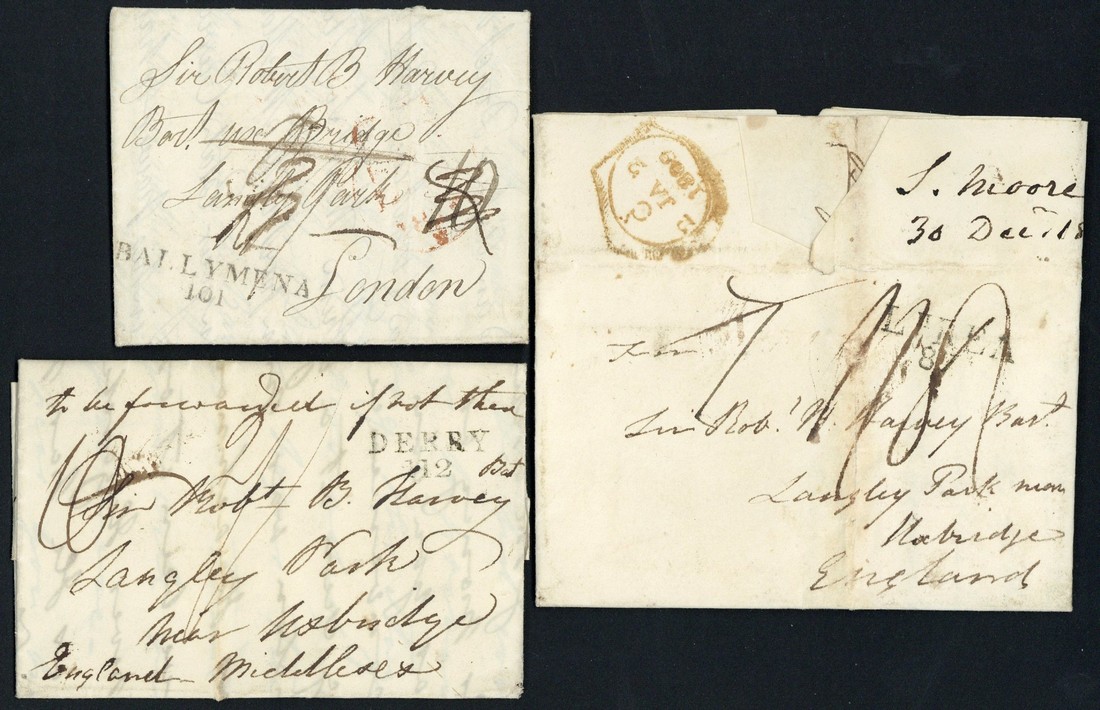 Sir Robert B Harvey
Bart. near Uxbridge
Langley Park
London
BALLYMENA
101
to be forwarded if not there
DERRY
112
Bart
Sir Robt B. Harvey
Langley Park
near Uxbridge
England Middlesex
JA
1809
S. Moore
30 Decr. 18
Sir Rob. Harvey Bart.
Langley Park near
Uxbridge
England